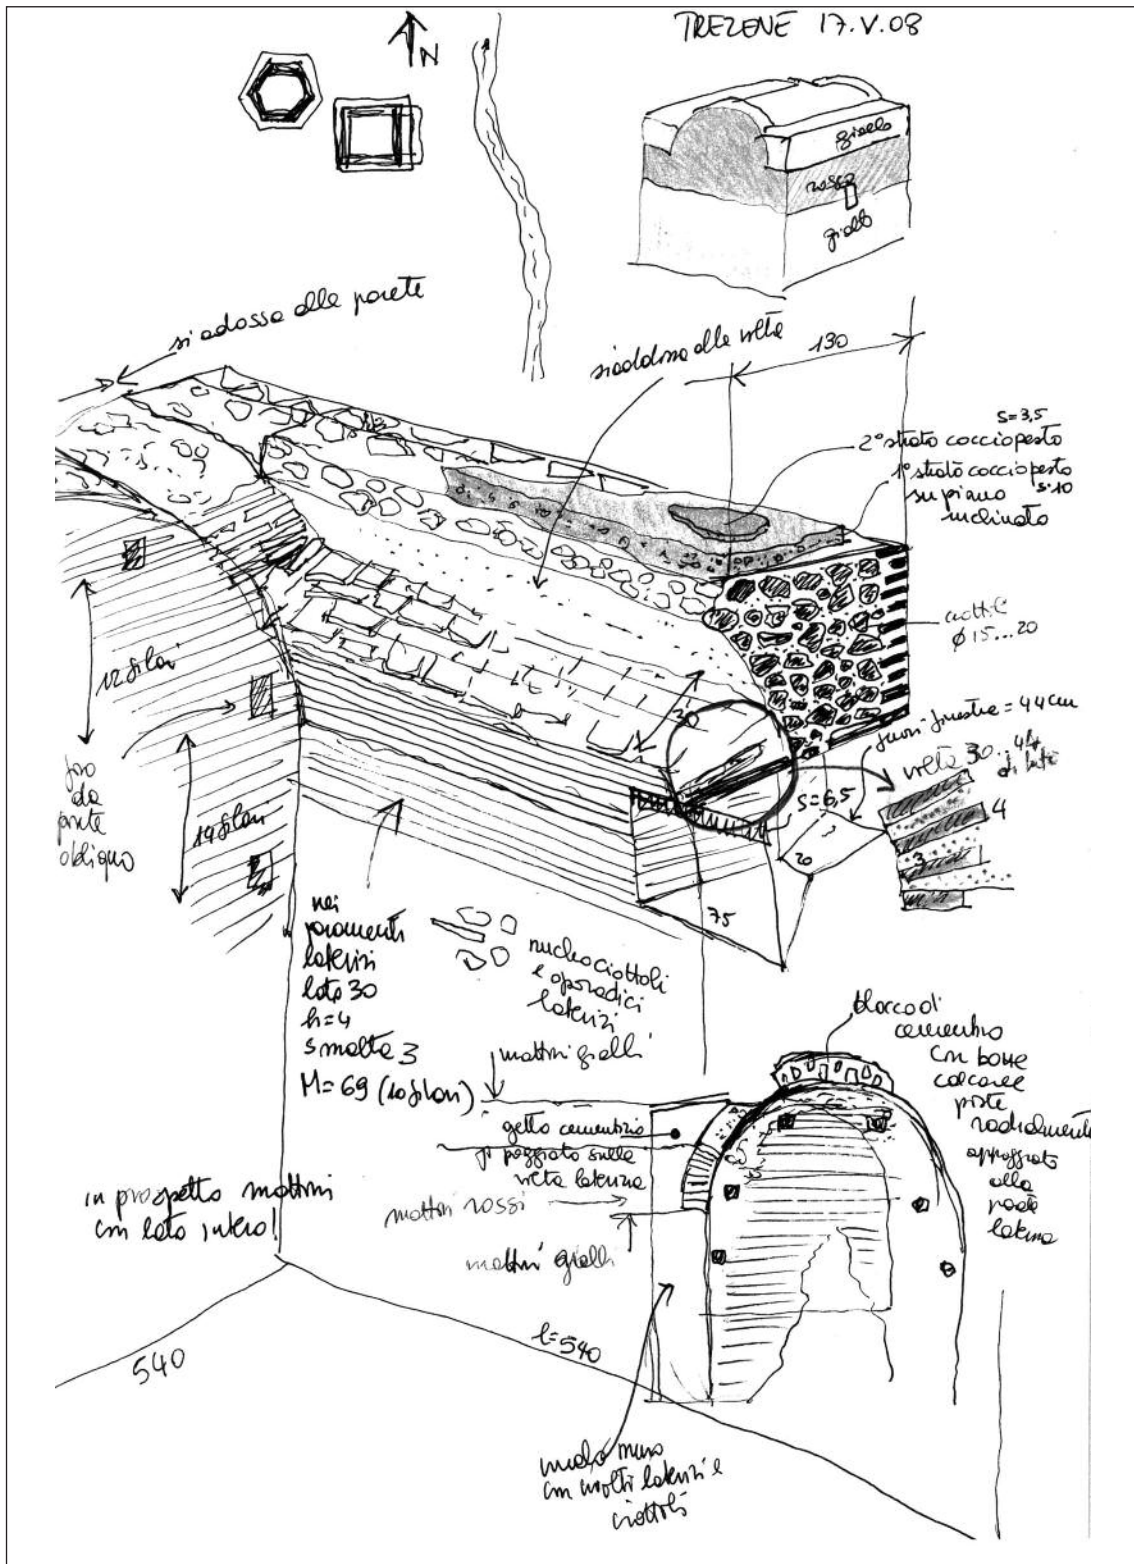 TREZENE 17.V.08
N
giallo
rosso
giallo
si adossa alla parete
si addossa alla volta
130
s=3,5
2° strato cocciopesto
1° strato cocciopesto
s.10
su piano
inclinato
ciottoli
ø 15...20
12 filari
14 filari
foro
da
ponte
obliquo
30
fuori finestra = 44 cm
volta 30...44
di lato
s=6,5
4
3
20
75
nei
paramenti
laterizi
lato 30
h=4
s malta 3
M=69 (10 filari)
nucleo ciottoli
e sporadici
laterizi
mattoni gialli
getto cementizio
poggiato sulla
volta laterizia
mattoni rossi
mattoni gialli
blocco di
cementizio
con bozze
calcaree
poste
radialmente
appoggiato
alla
volta
laterizia
in prospetto mattoni
con lato intero!
540
l=540
muro
con molti laterizi e
ciottoli